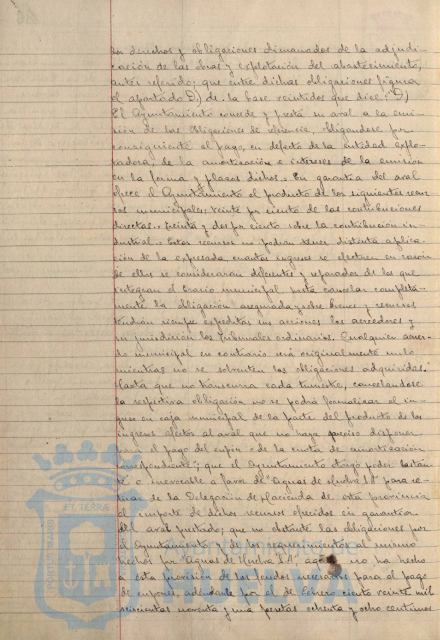 los derechos y obligaciones dimanados de la adjudi-
cación de las obras y explotación del abastecimiento,
antes referido; que entre dichas obligaciones figura
el apartado D) de la base veintidos que dice: "D)
El Ayuntamiento concede y presta su aval a la emi-
sión de las Obligaciones de referencia, obligandose por
consiguiente al pago, en defecto de la entidad explo-
tadora, de la amortización e intereses de la emisión
en la forma y plazos dichos.- En garantia del aval
ofrece el Ayuntamiento el producto de los siguientes recur-
sos municipales: Veinte por ciento de las contribuciones
directas.- Treinta y dos por ciento sobre la contribución in-
dustrial.- Estos recursos no podrán tener distinta aplica-
ción de la expresada, cuantos ingresos se efectuen en razón
de ellos se considerarán diferentes y separados de los que
integran el Erario municipal hasta cancelar completa-
mente la obligación asegurada y sobre bienes y recursos
tendrán siempre expeditas sus acciones los acreedores y
su jurisdicción los Tribunales ordinarios. Cualquier acuer-
do municipal en contrario será originalmente nulo
mientras no se solventen las obligaciones adquiridas.
Hasta que no transcurra cada trimestre, cancelandose
la respectiva obligación no se podrá formalizar el in-
greso en caja municipal de la parte del producto de los
ingresos afectos al aval que no haya preciso disponer
para el pago del cupón o de la cuota de amortización
correspondiente; que el Ayuntamiento otorgó poder bastan-
te e irrevocable a favor de "Aguas de Huelva S.A." para re-
tirar de la Delegación de Hacienda de esta provincia
el importe de dichos recursos ofrecidos en garantia
del aval prestado; que no obstante las obligaciones por
el Ayuntamiento y de los requerimientos al mismo
hechos por Aguas de Huelva S.A., no ha hecho
a esta provisión de los fondos necesarios para el pago
de cupones, adeudando por el de Febrero ciento veinte mil
seiscientas noventa y una pesetas ochenta y ocho centimos
FT. TERRA